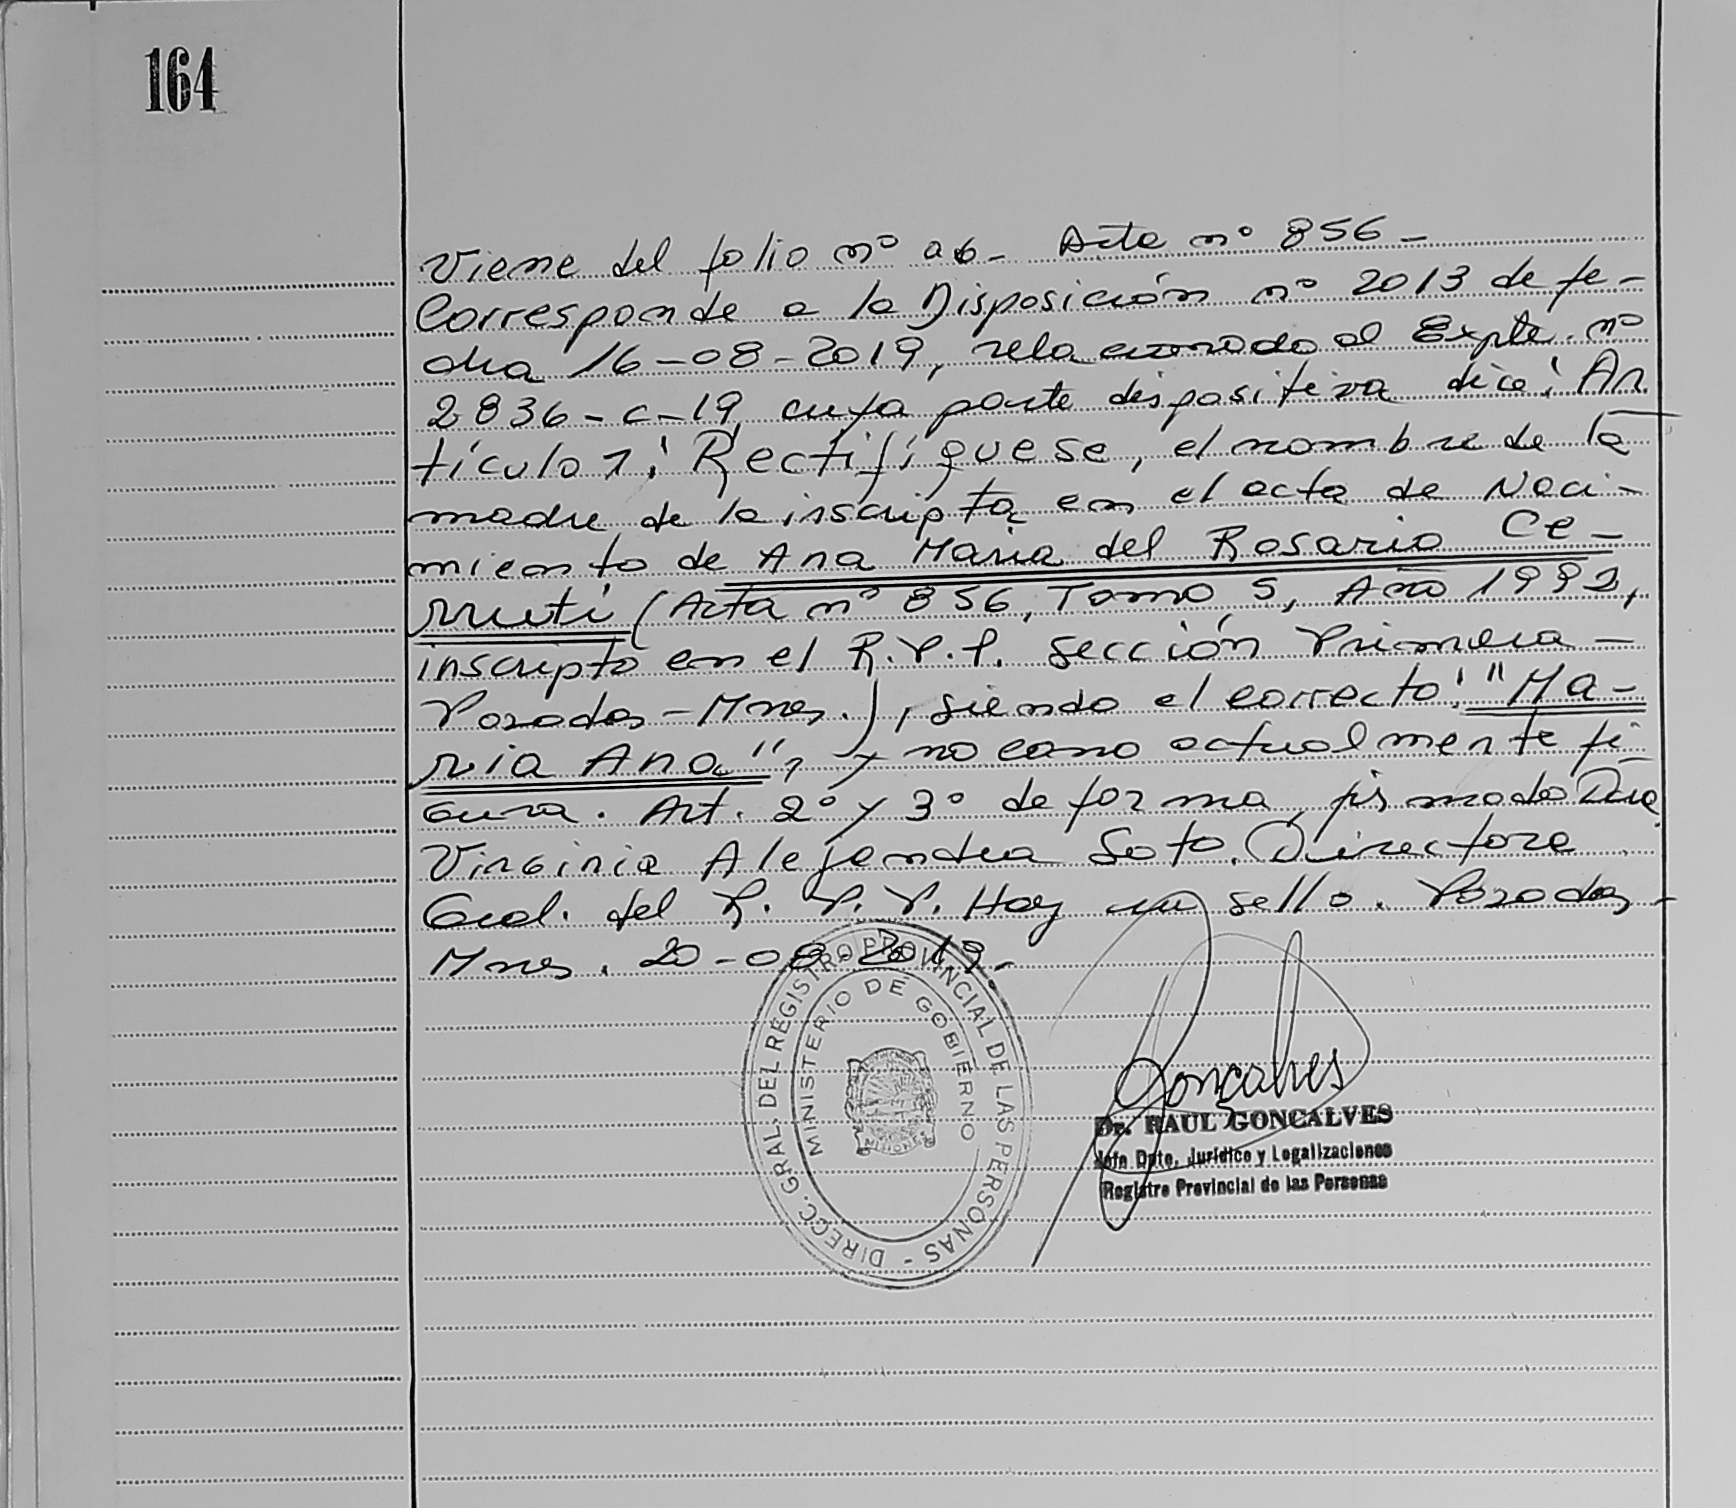 164
Viene del folio nº 26- Acta nº 856-
Corresponde a la Disposición nº 2013 de fe-
cha 16-08-2019, relacionado al Expte. nº
2836-C-19, cuya parte dispositiva dice: Ar
tículo 1: Rectifíquese, el nombre de la
madre de la inscripta en el acta de Naci-
miento de Ana Maria del Rosario Ce-
rruti (Acta nº 856, Tomo 5, Año 1992,
inscripto en el R.P.P. Sección Primera-
Posadas-Mnes.), siendo el correcto: "Ma-
ria Ana", y no como actualmente fi
gura. Art. 2º y 3º de forma, firmado Dra
Virginia Alejandra Soto. Directora
Gral. del R.P.P. Hay un sello. Posadas-
Mnes. 20-08-2019.-
DIRECC. GRAL. DEL REGISTRO PROVINCIAL DE LAS PERSONAS -
MINISTERIO DE GOBIERNO
Gonçalves
Dr. RAUL GONCALVES
Jefe Dpto. Jurídico y Legalizaciones
Registro Provincial de las Personas